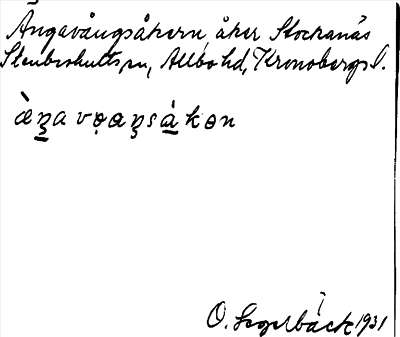 Ängavångsåkern, åker Stockanäs
Stenbrohults sn, Allbo hd, Kronobergs l.
O. Segerbäck 1931